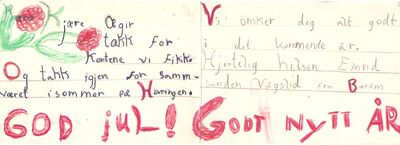 Kjære Ægir
takk for
Kortene vi fikk.
Og takk igjen for Samm-
været i sommer på Haringen.
GOD JUL!
Vi ønsker deg alt godt
i det kommende år.
Hjertelig hilsen Eivind
Vågslid fra Baram
GODT NYTT ÅR